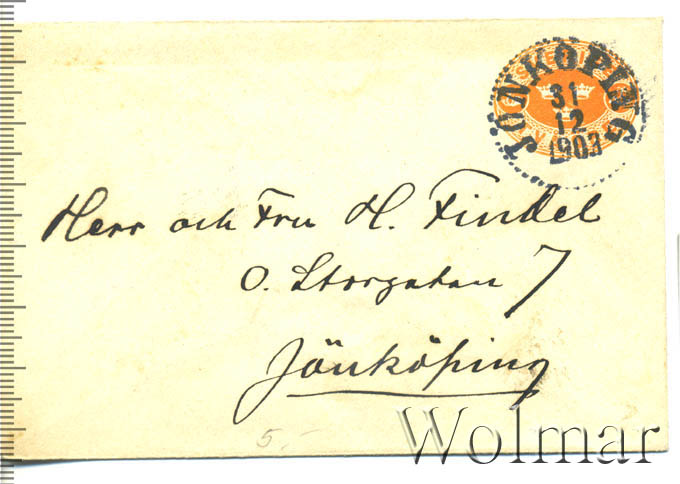 JÖNKÖPING
31
12
1903
Herr och Fru H. Findel
O. Storgatan 7
Jönköping
5.-
Wolmar